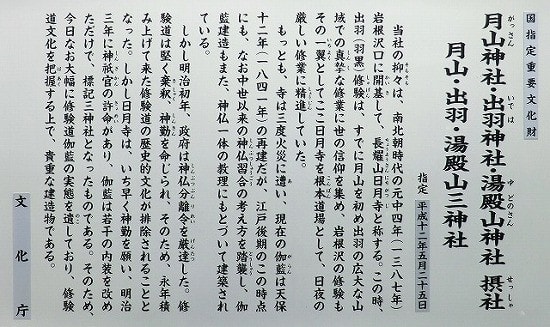 国指定重要文化財
月山神社・出羽神社・湯殿山神社 摂社
がっさん いでは ゆどのさん せっしゃ
月山・出羽・湯殿山三神社
指定 平成十二年五月二十五日
当社の抑々は、南北朝時代の元中四年(一三八七年)
岩根沢口に開基して、長耀山日月寺と称する。この時、
出羽・羽黒修験は、すでに月山を初め出羽の広大な山
域での真摯な修業に世の信仰を集め、岩根沢の修験も
その一翼としてここ日月寺を根本道場として、日夜の
厳しい修業に精進していた。
もっとも、寺は三度火災に遭い、現在の伽藍は天保
十二年(一八四一年)の再建だが、江戸後期のこの時点
にも、なお中世以来の神仏習合の考え方を踏襲し、伽
藍建造もまた、神仏一体の教理にもとづいて建築され
ている。
しかし明治初年、政府は神仏分離令を厳達した。修
験道は堅く棄釈、神勤を命じられ、そのため、永年積
み上げて来た修験道の歴史的文化が排除されることと
なった。しかし日月寺は、いち早く神勤を願い、明治
三年に神祇官の許命があり、伽藍は若干の内装を改め
ただけで、標記三神社となったものである。そのため、
今日なお大幅に修験道伽藍の実態を遺しており、修験
道文化を把握する上で、貴重な建造物である。
文化庁